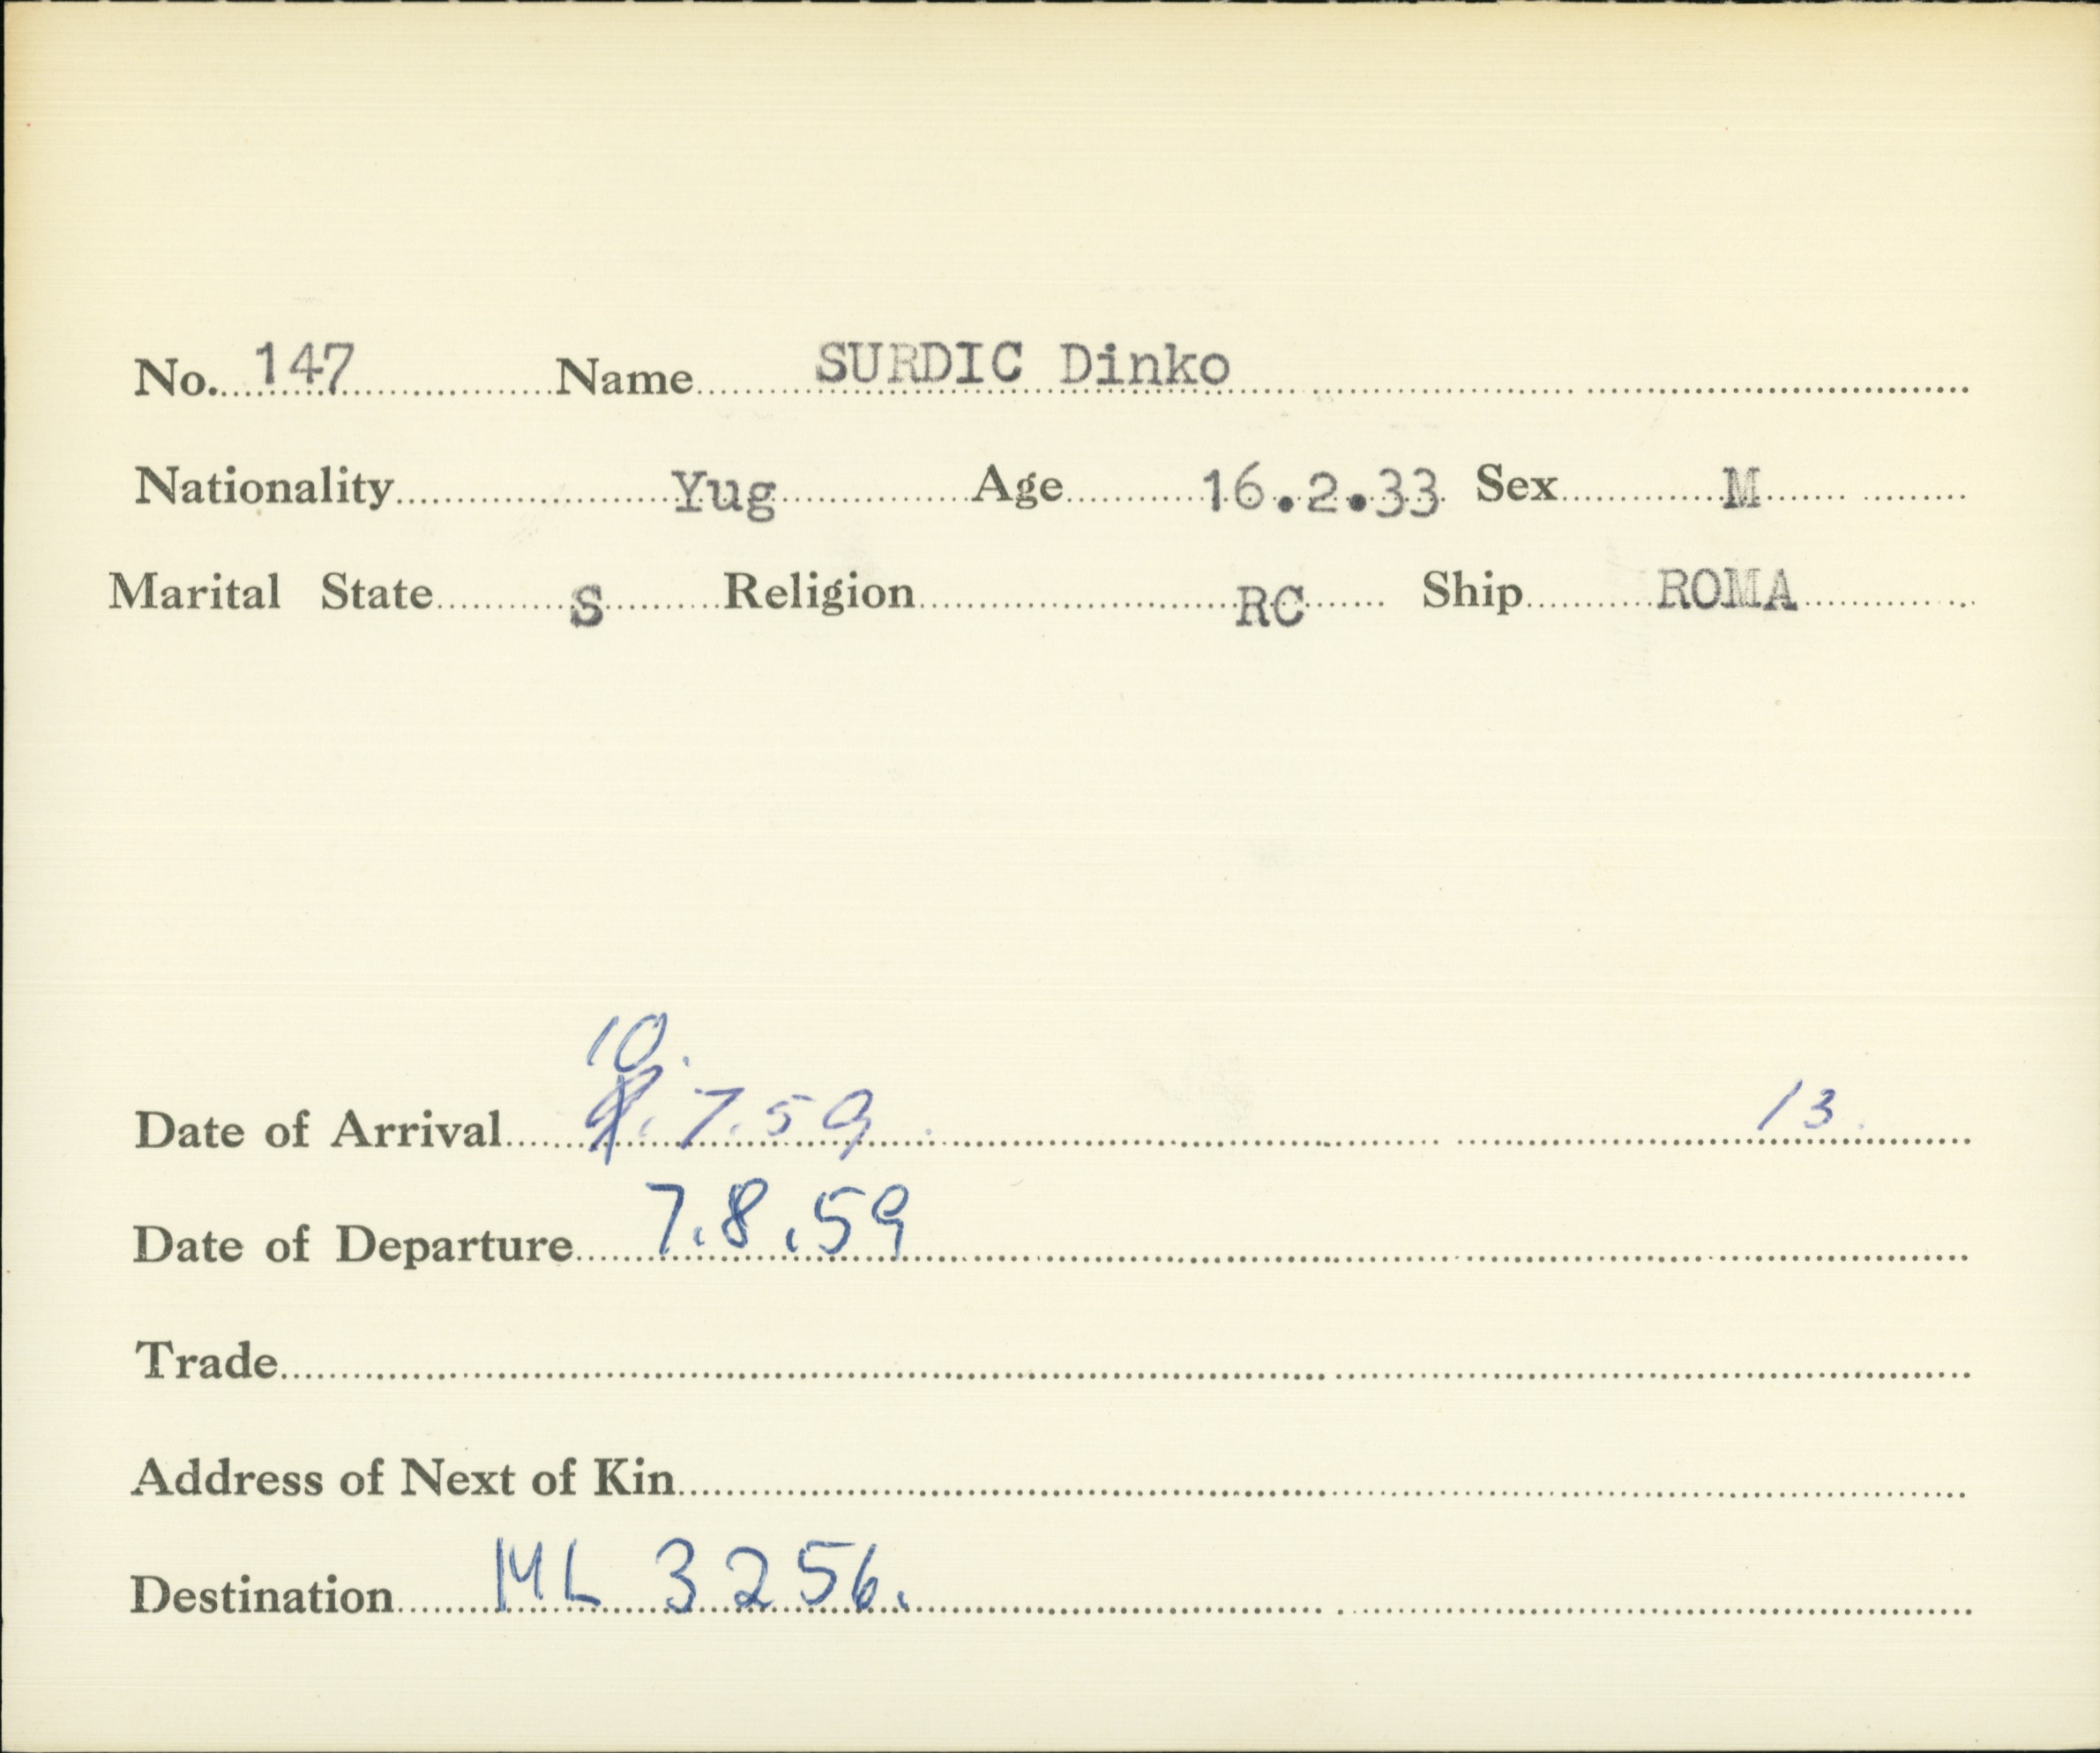 No. 147 Name SURDIC Dinko
Nationality Yug Age 16.2.33 Sex M
Marital State S Religion RC Ship ROMA
10.
Date of Arrival 9.7.59 13
Date of Departure 7.8.59
Trade
Address of Next of Kin
Destination ML 3256.